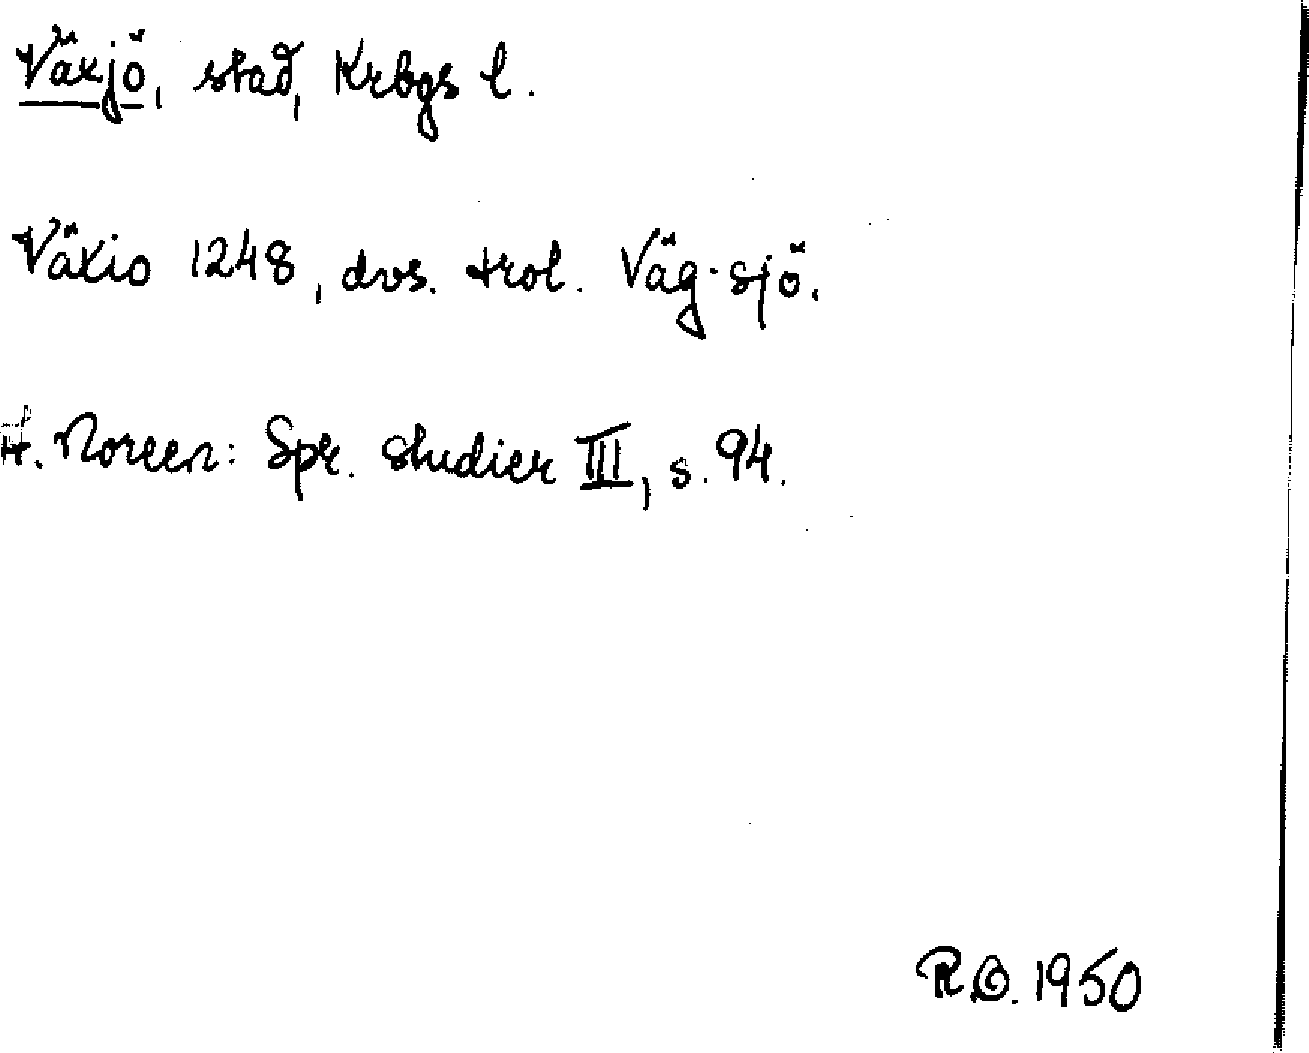 Växjö, stad, Krbgs l.
Växio 1248, dvs. trol. Väg-sjö.
Noreen: Spr. studier III, s. 94.
1950